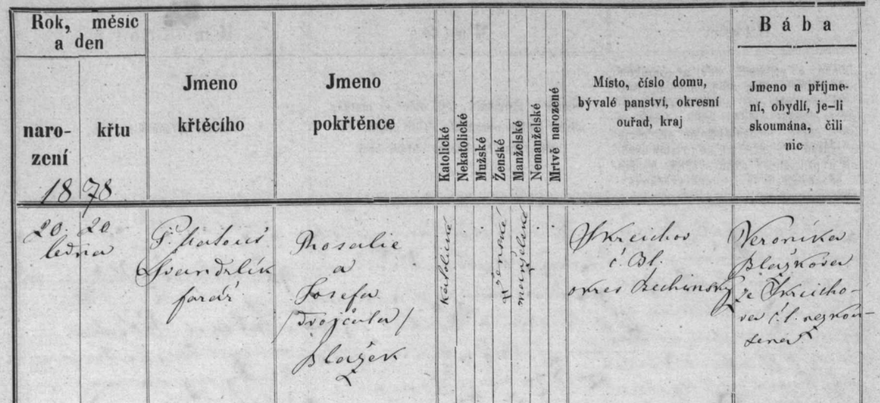 Rok, měsíc
a den
naro-
zení
křtu
Jmeno
křtěcího
Jmeno
pokřtěnce
Katolické
Nekatolické
Mužské
Ženské
Manželské
Nemanželské
Mrtvě narozené
Místo, číslo domu,
bývalé panství, okresní
ouřad, kraj
Bába
Jmeno a příjme-
ní, obydlí, je-li
skoumána, čili
nic
1878
20. 20
ledna
P. Matouš
farář
Rosalie
a
Josefa
/dvojčata/
Blažek
katolické
ženské
manželské
Skreichov
č.
okres Bechinský
Veronika
Blažkova
ze Skreicho-
va č. 1. nezkou-
šena